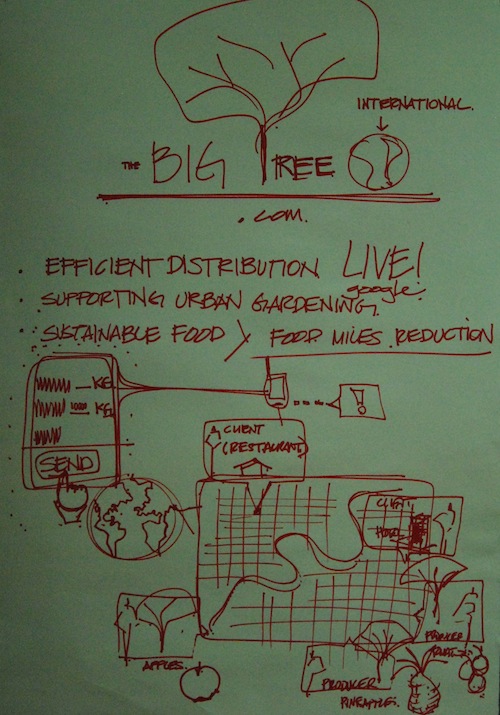 INTERNATIONAL.
THE BIG TREE
.com.
• EFFICIENT DISTRIBUTION LIVE!
google
• SUPPORTING URBAN GARDENING.
• SUSTAINABLE FOOD > FOOD MILES REDUCTION
KG
1000 KG
SEND
!
CLIENT
(RESTAURANT)
CLIENT
APPLES.
PRODUCER
PRODUCER
PINEAPPLES.